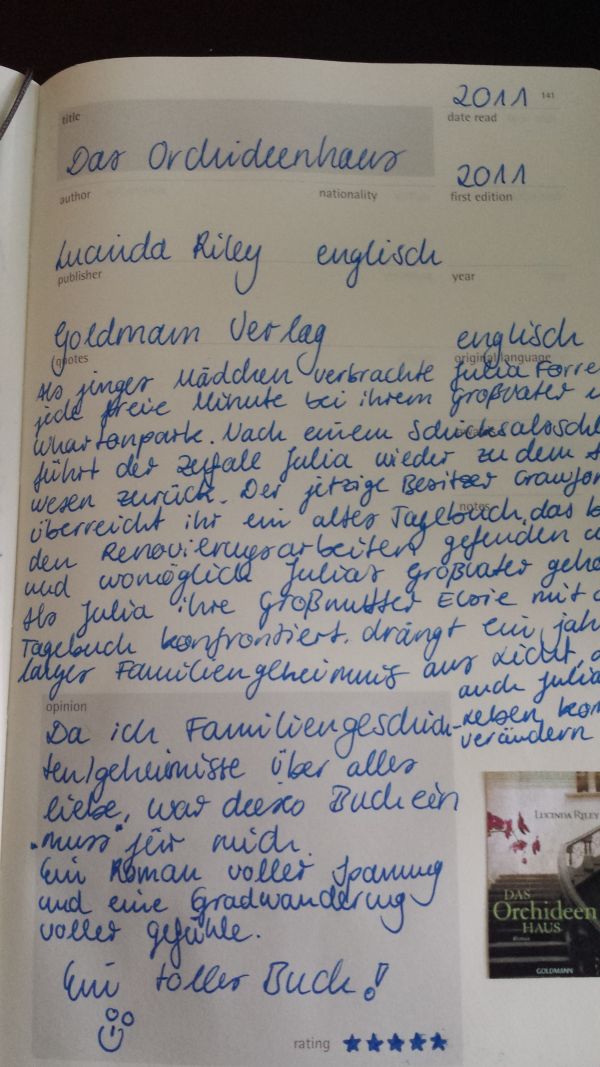 2011 141
title date read
Das Orchideenhaus 2011
author nationality first edition
Lucinda Riley englisch
publisher year
Goldmann Verlag englisch
quotes original language
Als junges Mädchen verbrachte Julia Forre
jede freie Minute bei ihrem Großvater
Whartonpark. Nach einem Schicksalsschl
führt der Zufall Julia wieder zu dem
wesen zurück. Der jetzige Besitzer Crawfor
notes
überreicht ihr ein altes Tagebuch, das b
den Renovierungsarbeiten gefunden
und womöglich Julias Großvater geho
Als Julia ihre Großmutter Elsie mit d
Tagebuch konfrontiert, drängt ein jah
langes Familiengeheimnis ans Licht,
auch Julia
Leben kom
verändern
opinion
Da ich Familiengeschich-
ten/geheimnisse über alles
liebe, war dieses Buch ein
"muss" für mich.
Ein Roman voller Spannung
und eine Gradwanderung
voller Gefühle.
Ein tolles Buch!
rating
LUCINDA RILEY
DAS
Orchideen
HAUS
Roman
GOLDMANN